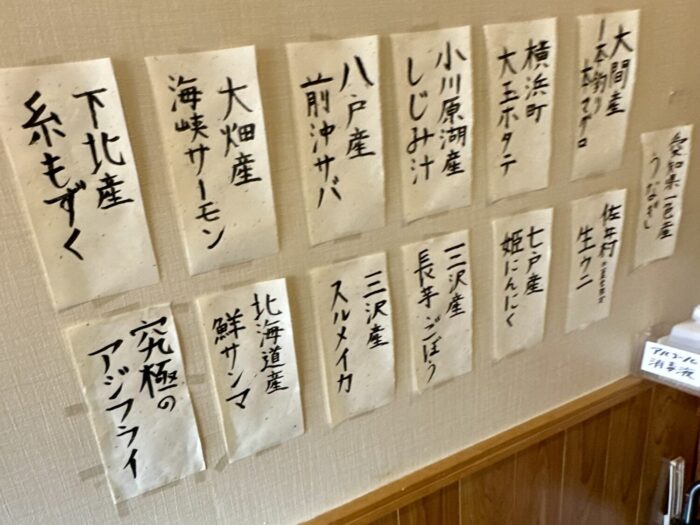 大間産
一本釣り
本マグロ
横浜町
大王ホタテ
小川原湖産
しじみ汁
八戸産
前沖サバ
大畑産
海峡サーモン
下北産
糸もずく
愛知県一色産
うなぎ
佐井村
生ウニ
七戸産
姫にんにく
三沢産
長芋ごぼう
三沢産
スルメイカ
北海道産
鮮サンマ
究極の
アジフライ
アルコール
消毒液